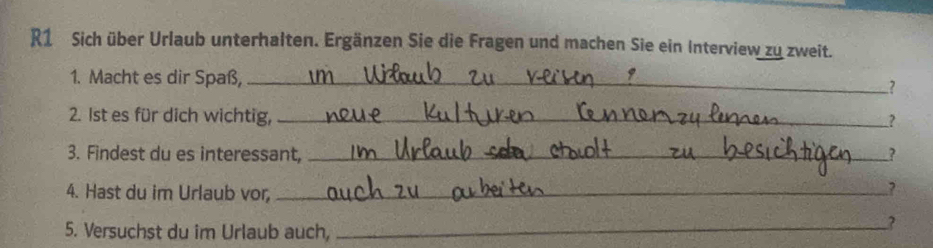 R1 Sich über Urlaub unterhalten. Ergänzen Sie die Fragen und machen Sie ein Interview zu zweit.
1. Macht es dir Spaß, im Urlaub zu reisen ? ?
2. Ist es für dich wichtig, neue Kulturen kennenzulernen ?
3. Findest du es interessant, im Urlaub stadt zu besichtigen ?
4. Hast du im Urlaub vor, auch zu arbeiten ?
5. Versuchst du im Urlaub auch, ?